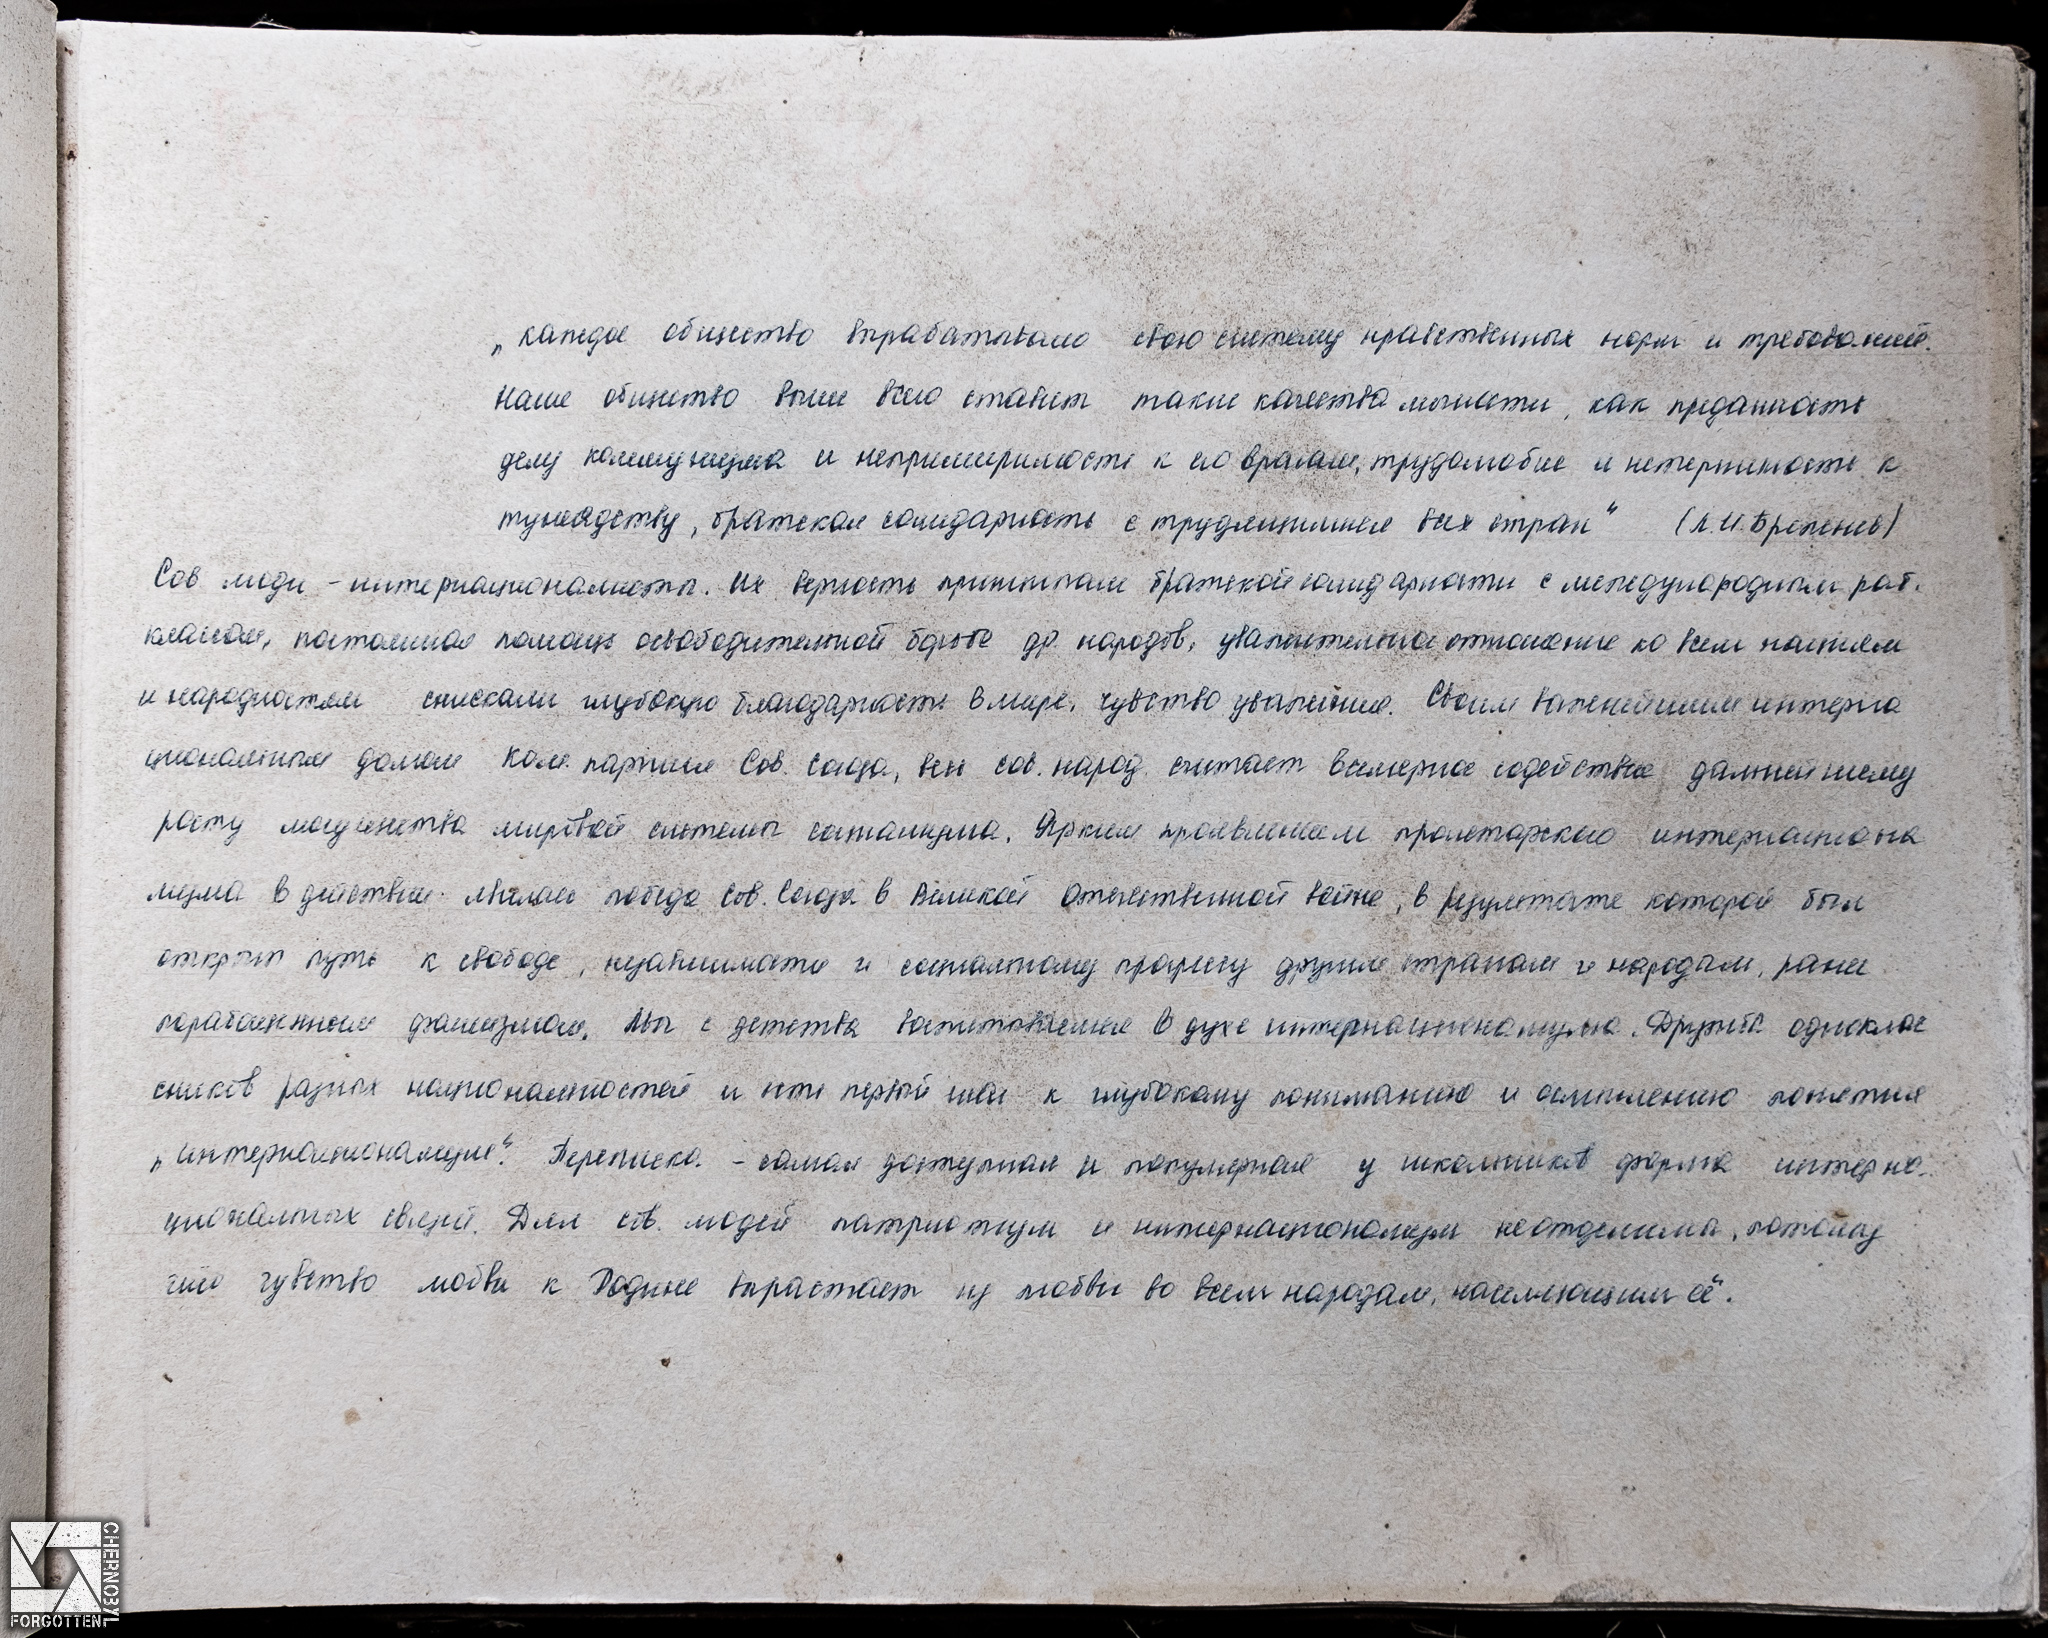 „каждое общество вырабатывало свою систему нравственных норм и требований.
Наше общество выше всего ставит такие качества личности, как преданность
делу коммунизма и непримиримость к его врагам, трудолюбие и нетерпимость к
тунеядству, братская солидарность с трудящимися всех стран“ (Л.И.Брежнев)
Сов люди - интернационалисты. Их верность принципам братской солидарности с международным раб.
классом, постоянная помощь освободительной борьбе др народов, уважительное отношение ко всем нациям
и народностям снискали глубокую благодарность в мире, чувство уважения. Своим важнейшим интерна
циональным долгом Ком. партия Сов. Союза, весь сов. народ. считает всемерное содействие дальнейшему
росту могущества мировой системы социализма. Ярким проявлением пролетарского интернациона
лизма в действии явилась победа Сов. Союза в Великой Отечественной войне, в результате которой был
открыт путь к свободе, независимости и социальному прогрессу другим странам и народам, ранее
порабощенным фашизмом. Мы с детства воспитываемся в духе интернационализма. Дружба однокла
сников разных национальностей и есть первый шаг к глубокому пониманию и осмыслению понятия
„интернационализм“. Переписка - самая доступная и популярная у школьников форма интерна
циональных связей. Для сов. людей патриотизм и интернационализм неотделимы, потому
что чувство любви к Родине вырастает из любви ко всем народам, населяющим её“.
CHERNO3YL
FORGOTTEN